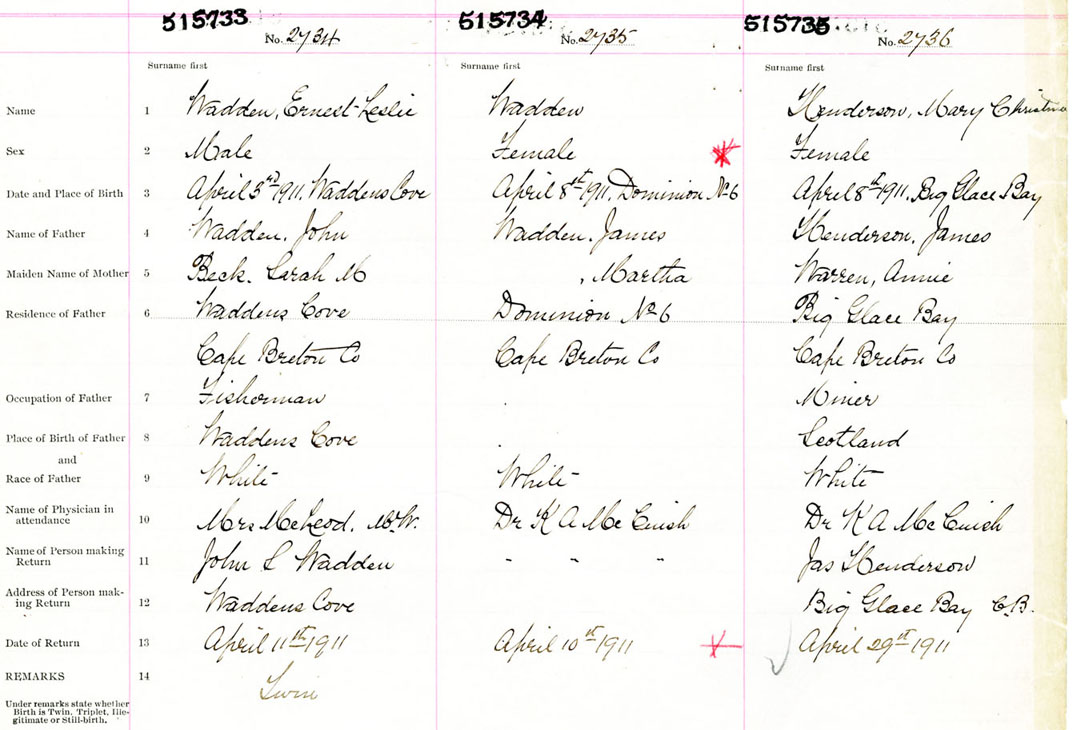 515733 515734 515735
No. 2734 No. 2735 No. 2736
Surname first Surname first Surname first
Name 1 Wadden, Ernest Leslie Wadden Henderson, Mary Christina
Sex 2 Male Female Female
Date and Place of Birth 3 April 3rd 1911, Waddens Cove April 8st 1911, Dominion No 6 April 8th 1911, Big Glace Bay
Name of Father 4 Wadden, John Wadden, James Henderson, James
Maiden Name of Mother 5 Beck. Sarah M , Martha Warren, Annie
Residence of Father 6 Waddens Cove Dominion No 6 Big Glace Bay
Cape Breton Co Cape Breton Co Cape Breton Co
Occupation of Father 7 Fisherman Miner
Place of Birth of Father 8 Waddens Cove Scotland
and
Race of Father 9 White White White
Name of Physician in
attendance 10 Mrs McLeod. Dr K A McCuish Dr K A McCuish
Name of Person making
Return 11 John S Wadden " " " Jas Henderson
Address of Person mak-
ing Return 12 Waddens Cove Big Glace Bay C.B.
Date of Return 13 April 11th 1911 April 10st 1911 April 29st 1911
REMARKS 14 Twin
Under remarks state whether
Birth is Twin, Triplet, Ille-
gitimate or Still-birth.